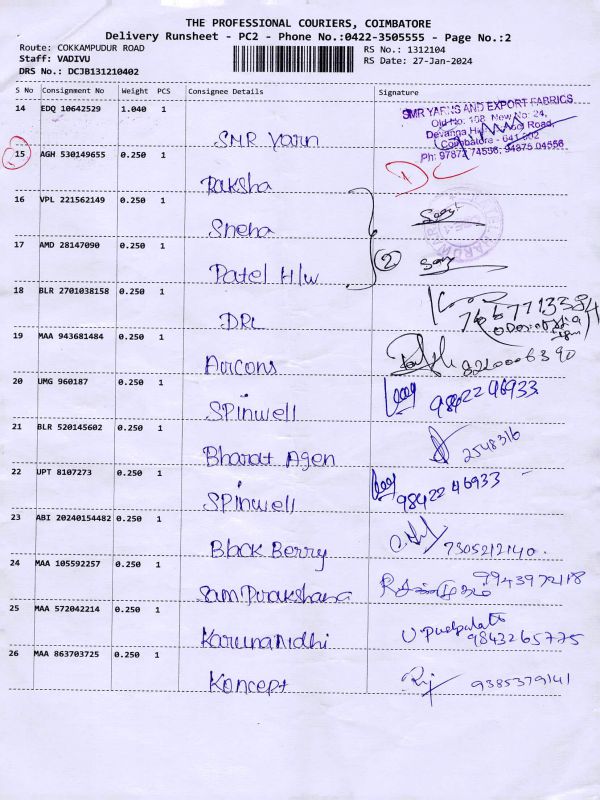 THE PROFESSIONAL COURIERS, COIMBATORE
Delivery Runsheet - PC2 - Phone No.:0422-3505555 - Page No.:2
Route: COKKAMPUDUR ROAD RS No.: 1312104
Staff: VADIVU RS Date: 27-Jan-2024
DRS No.: DCJB131210402
S No Consignment No Weight PCS Consignee Details Signature
14 EDQ 10642529 1.040 1 SMR Yarn
SMR YARNS AND EXPORT FABRICS
Old No: 108, New No: 24,
Road,
Coimbatore - 641 002
Ph: 97877 74556, 94875 04556
15 AGH 530149655 0.250 1 Raksha DC
16 VPL 221562149 0.250 1 Sneha
17 AMD 28147090 0.250 1 Patel H/w 2
18 BLR 2701038158 0.250 1 DRL 7667713384
19 MAA 943681484 0.250 1 Aircons
20 UMG 960187 0.250 1 SPinwell 9842246933
21 BLR 520145602 0.250 1 Bharat Agen 2548316
22 UPT 8107273 0.250 1 SPinwell 9842246933
23 ABI 20240154482 0.250 1 Black Berry 7305212140.
24 MAA 105592257 0.250 1 Sam Purakshana 9943972118
25 MAA 572042214 0.250 1 Karunanidhi 9843265775
26 MAA 863703725 0.250 1 Koncept 9385379141